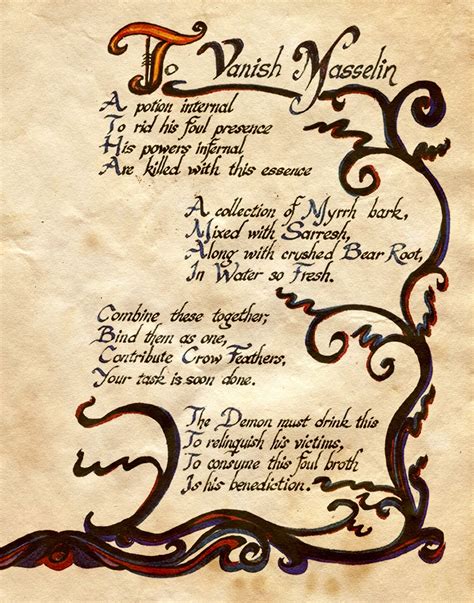 To Vanish Masselin
A potion internal
To rid his foul presence
His powers infernal
Are killed with this essence
A collection of Myrrh bark,
Mixed with Sarresh,
Along with crushed Bear Root,
In Water so Fresh.
Combine these together,
Bind them as one,
Contribute Crow Feathers,
Your task is soon done.
The Demon must drink this
To relinquish his victims,
To consume this foul broth
Is his benediction.